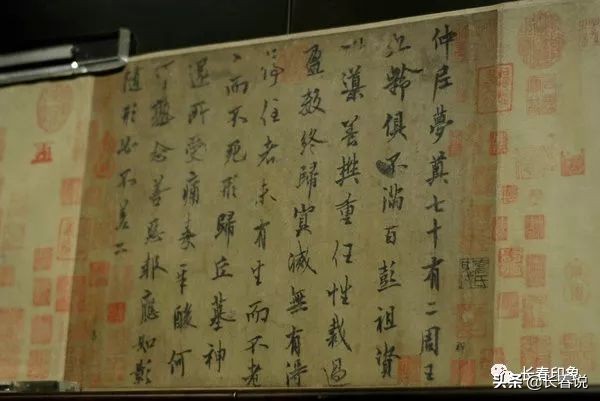 仲尼夢奠七十有二周王
九齡俱不滿百彭祖資
以導養樊重任性裁過
盈數終歸冥滅無有得
停住者未有生而不老
老而不死形歸丘墓神
還所受痛毒辛酸何
可熟念善惡報應如影
隨形必不差二
长春印象
头条 @长春说